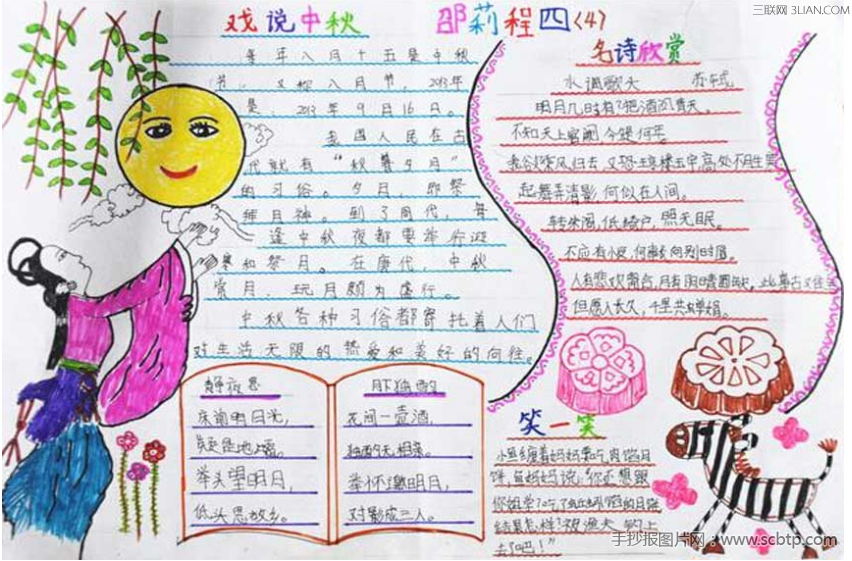 三联网 3LIAN.COM
戏说中秋
邵莉程四〈4〉
每年八月十五是中秋
节，又称八月节，2013年
是，2013年9月16日。
我国人民在古
代就有“秋暮夕月”
的习俗。夕月，即祭
拜月神。到了周代，每
逢中秋夜都要举行迎
寒和祭月。在唐代，中秋
赏月、玩月颇为盛行。
中秋各种习俗都寄托着人们
对生活无限的热爱和美好的向往。
名诗欣赏
水调歌头 苏轼
明月几时有？把酒问青天。
不知天上宫阙，今夕何年。
我欲乘风归去，又恐琼楼玉宇，高处不胜寒
起舞弄清影，何似在人间。
转朱阁，低绮户，照无眠。
不应有恨，何事长向别时圆。
人有悲欢离合，月有阴晴圆缺，此事古难全
但愿人长久，千里共婵娟。
静夜思
床前明月光，
疑是地上霜。
举头望明月，
低头思故乡。
月下独酌
花间一壶酒，
独酌无相亲。
举杯邀明月，
对影成三人。
笑一笑
小鱼缠着妈妈要吃肉馅月
饼，鱼妈妈说：“你还想跟
结果怎样？被渔夫钓上
去了吧！”
手抄报图片网：www.scbtp.com